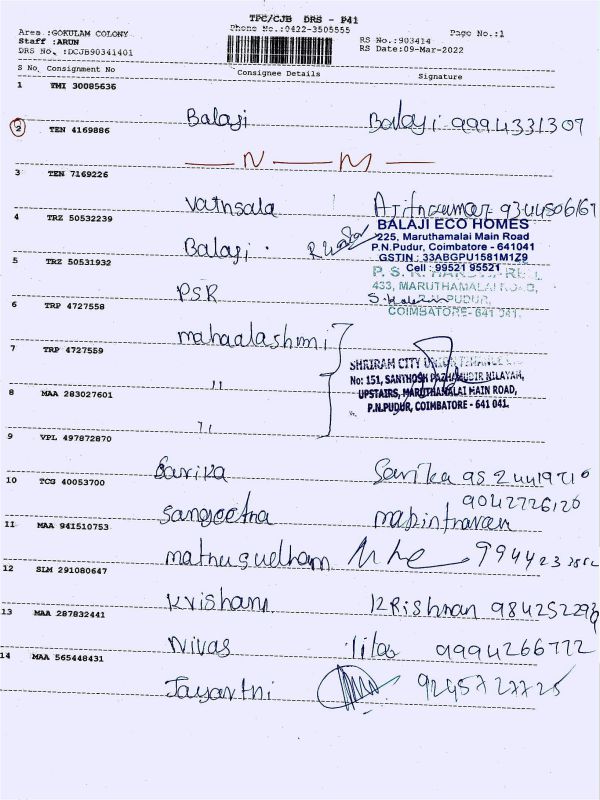 TPC/CJB DRS - P41
Area :GOKULAM COLONY
Phone No.:0422-3505555
Page No.:1
Staff :ARUN
RS No.:903414
DRS No. :DCJB90341401
RS Date:09-Mar-2022
S No. Consignment No Consignee Details Signature
1 TMI 30085636
Balaji Balaji 9994331307
2 TEN 4169886
N M
3 TEN 7169226
Vathsala
4 TRZ 50532239
BALAJI ECO HOMES
225, Maruthamalai Main Road
P.N.Pudur, Coimbatore - 641041
GSTIN : 33ABGPU1581M1Z9
Cell : 99521 95521
Balaji
5 TRZ 50531932
433, MARUTHAMALAI ROAD,
COIMBATORE- 641 041.
PSR
6 TRP 4727558
mahaalashmi
7 TRP 4727559
SHRIRAM CITY
No: 151, SANTHOSH PAZHAMUDIR NILAYAM,
UPSTAIRS, MARUTHAMALAI MAIN ROAD,
P.N.PUDUR, COIMBATORE - 641 041.
"
8 MAA 283027601
"
9 VPL 497872870
Sarika Sarika
10 TCG 40053700
9042726126
Sangeetha
11 MAA 941510753
12 SLM 291080647
Krishann Krishnan
13 MAA 287832441
Nivas 9994266772
14 MAA 565448431
Jayanthi